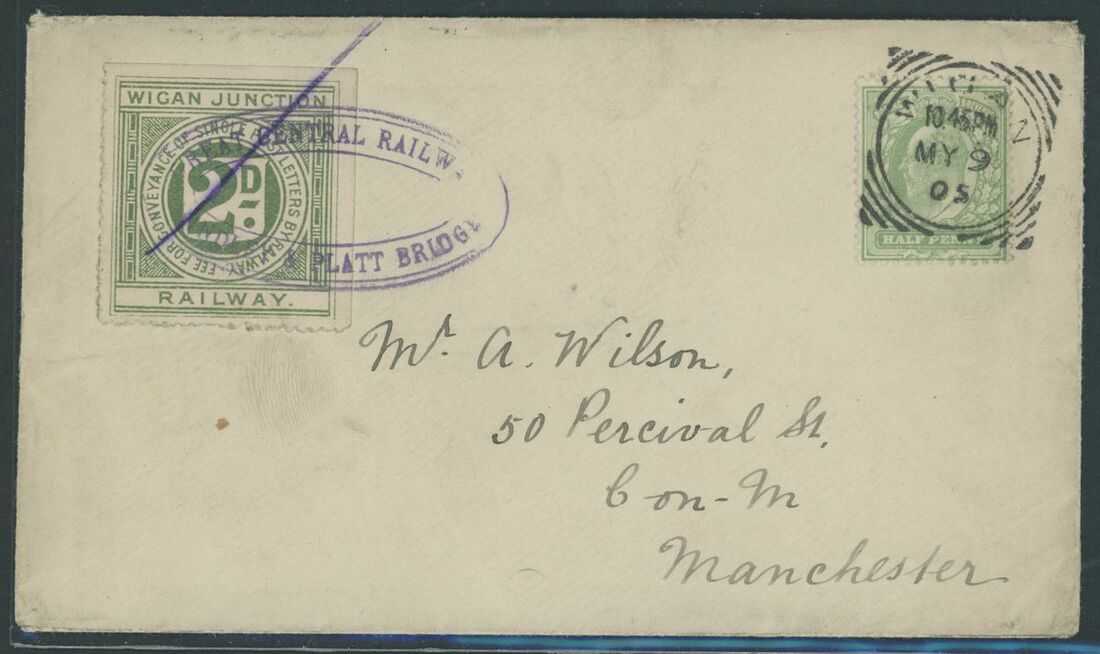 WIGAN JUNCTION
FEE FOR CONVEYANCE OF SINGLE POST LETTERS BY RAILWAY
2D.
RAILWAY.
GREAT CENTRAL RAILWAY
& PLATT BRIDGE
WIGAN
10.45PM
MY 9
05
HALF PENNY
Mr. A. Wilson,
50 Percival St.
C on-M
Manchester